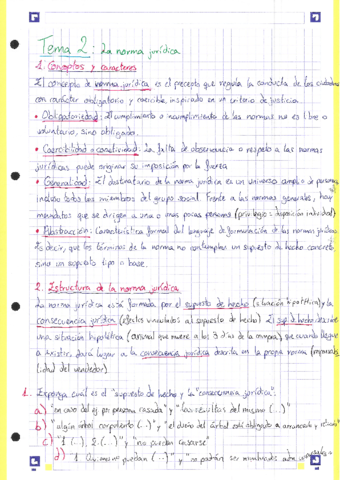 Tema 2: La norma jurídica
1. Conceptos y caracteres
El concepto de norma jurídica es el precepto que regula la conducta de los ciudadanos
con carácter obligatorio y coercible inspirado en un criterio de justicia.
• Obligatoriedad: El cumplimiento o incumplimiento de las normas no es libre o
voluntario, sino obligado.
• Coercibilidad o coactividad: La falta de observancia o respeto a las normas
jurídicas puede originar su imposición por la fuerza
• Generalidad: El destinatario de la norma jurídica es un universo amplio de personas,
incluso todos los miembros del grupo social. Frente a las normas generales, hay
mandatos que se dirigen a una o unas pocas personas (privilegio o disposición individual)
• Abstracción: Característica formal del lenguaje de formulación de las normas jurídicas
Es decir, que los términos de la norma no contemplan un supuesto de hecho concreto
sino un supuesto tipo o base.
2. Estructura de la norma jurídica
La norma jurídica está formada por el supuesto de hecho (situación hipotética) y la
consecuencia jurídica (efectos vinculados al supuesto de hecho). El sup. de hecho describe
una situación hipotética (animal que muere a los 3 días de la compra) que cuando llegue
a existir, dará lugar a la consecuencia jurídica descrita en la propia norma (responsabi
lidad del vendedor)
1. Exponga cuál es el "supuesto de hecho y la "consecuencia jurídica":
a) "en caso del ej por persona casada" y "las resultas del mismo (...)"
b) "algún árbol corpulento (...)" y "el dueño del árbol está obligado a arrancarlo y retirarlo
c) "1 (...), 2 (...)" y "no pueden casarse"
d) "1. (...)" y "no podrán ser nombrados